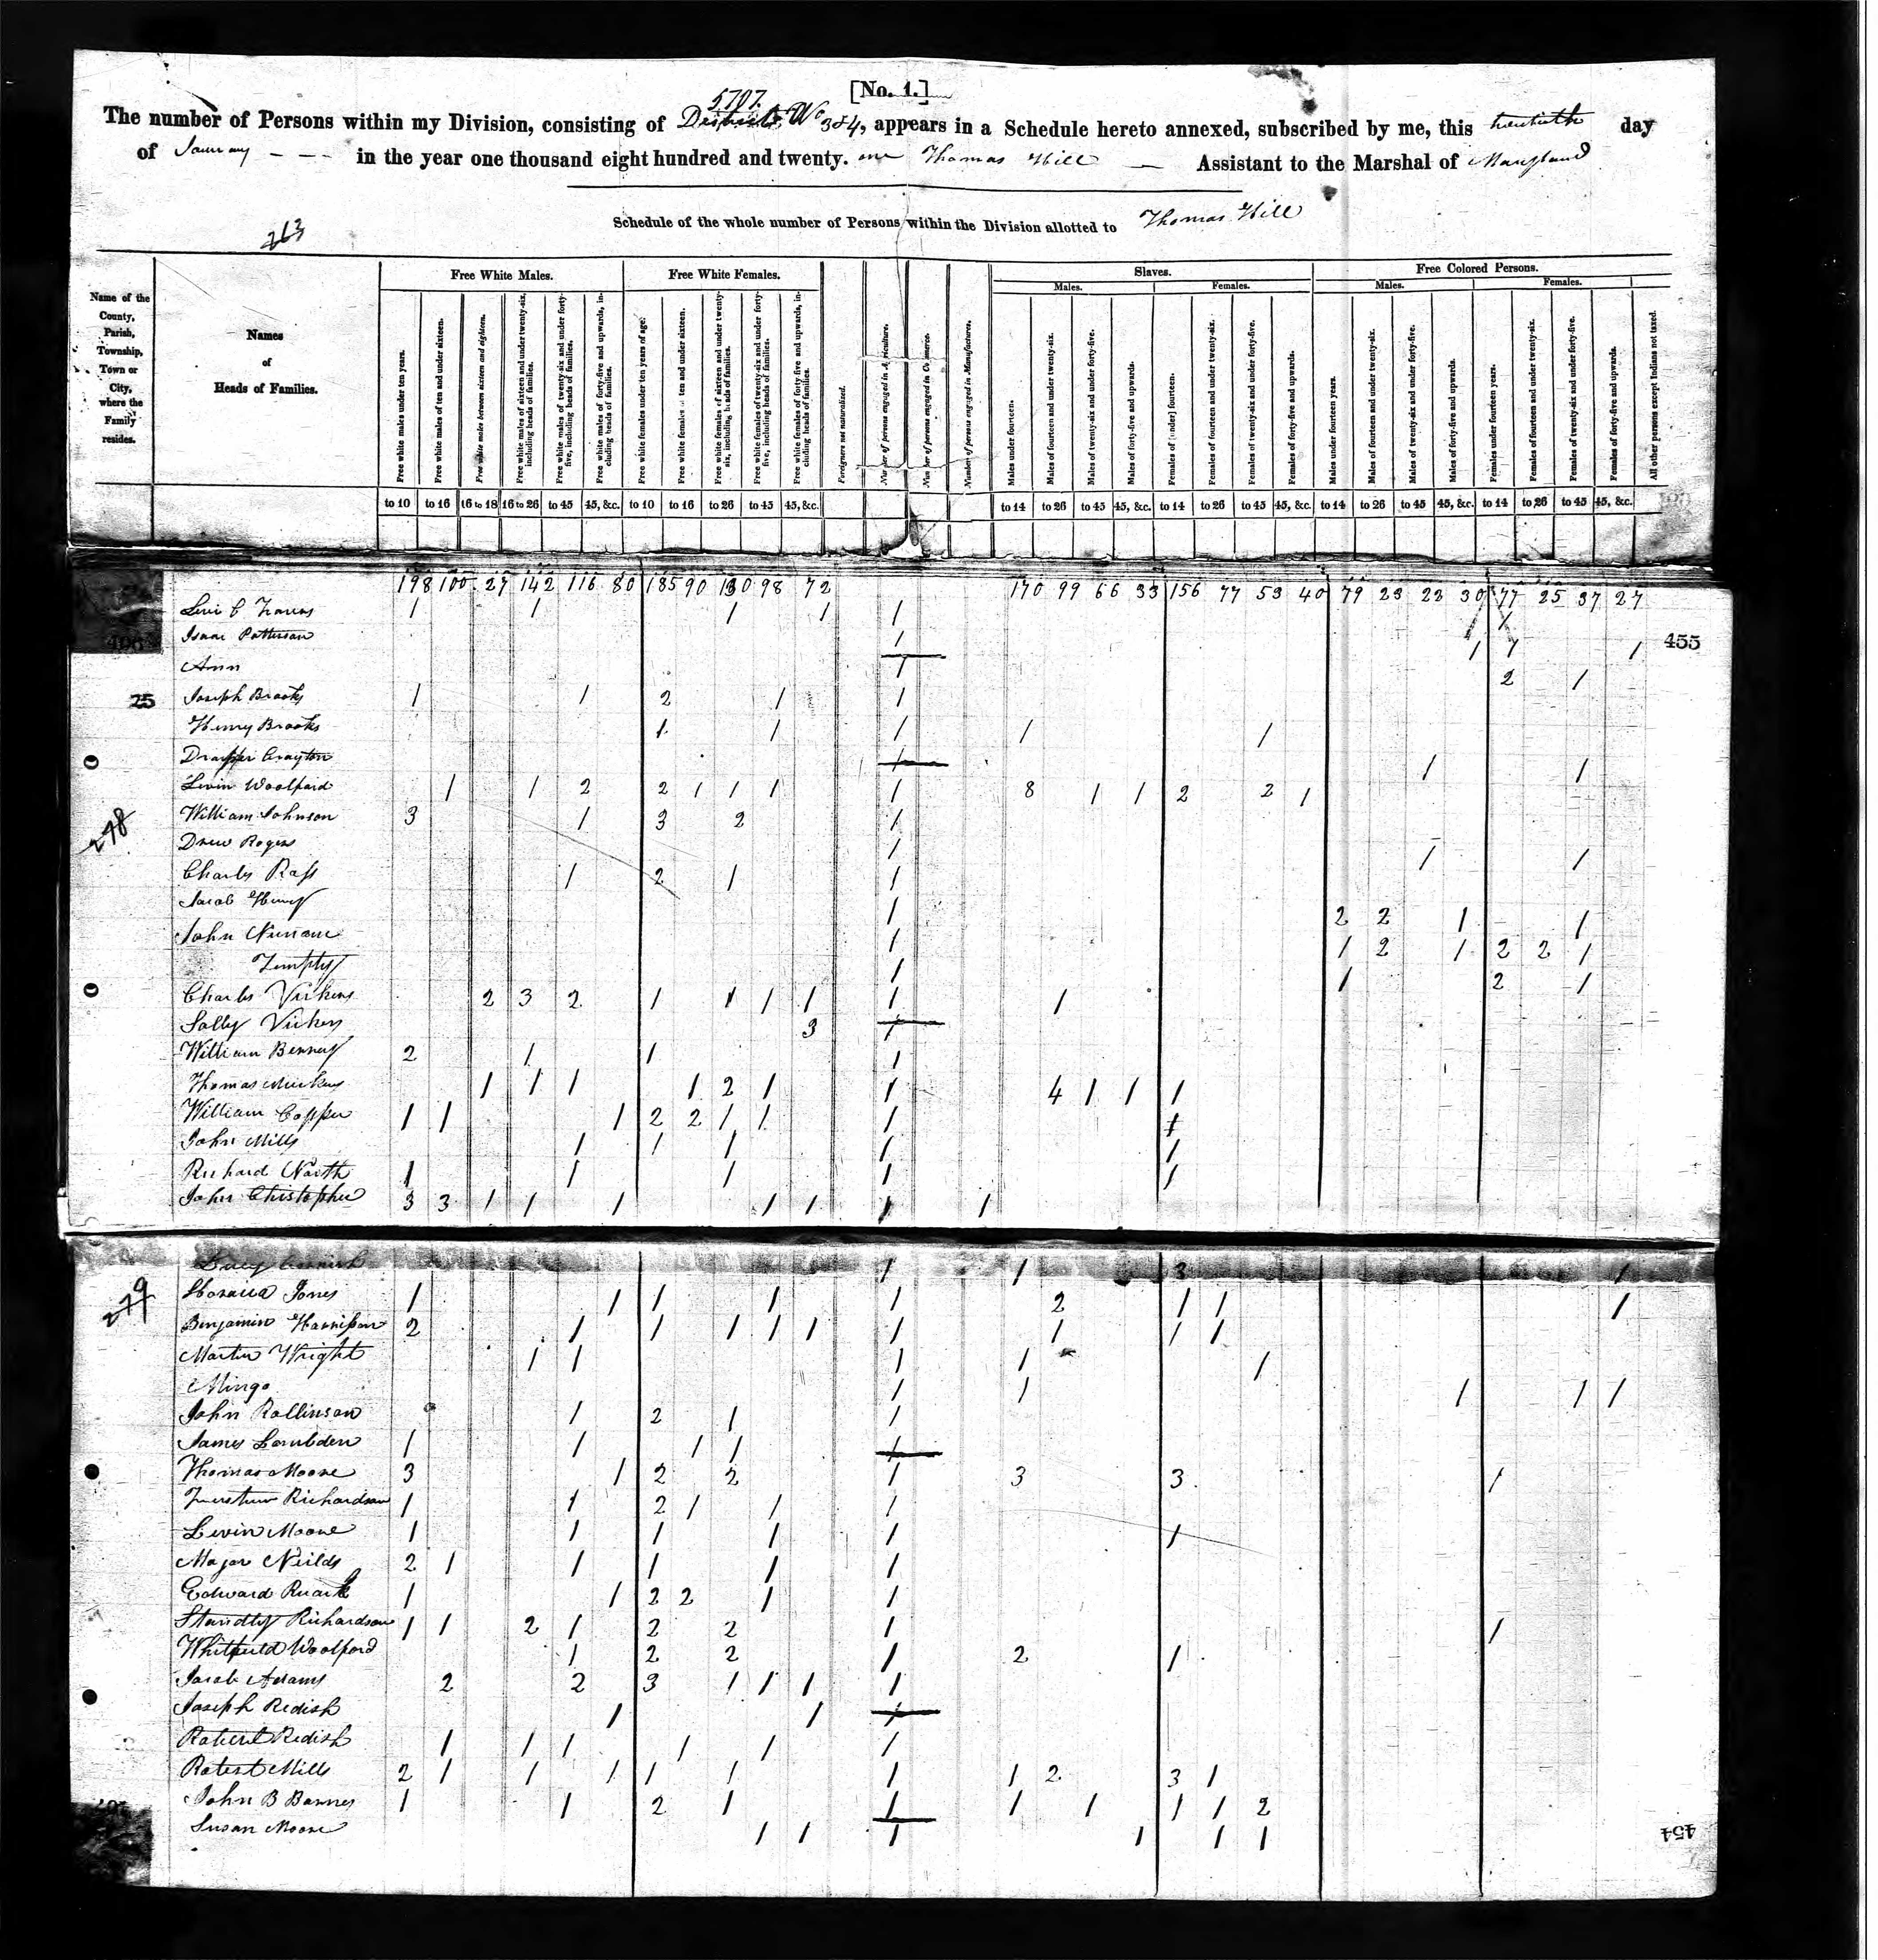 [No. 1.]
5707.
The number of Persons within my Division, consisting of Districts No 3&4, appears in a Schedule hereto annexed, subscribed by me, this twentieth day
of January - - - in the year one thousand eight hundred and twenty. one Thomas Hill — Assistant to the Marshal of Maryland
Schedule of the whole number of Persons within the Division allotted to Thomas Hill
263
Name of the County, Parish, Township, Town or City, where the Family resides.
Names of Heads of Families.
Free White Males.
Free white males under ten years.
Free white males of ten and under sixteen.
Free white males between sixteen and eighteen.
Free white males of sixteen and under twenty-six, including heads of families.
Free white males of twenty-six and under forty-five, including heads of families.
Free white males of forty-five and upwards, including heads of families.
Free White Females.
Free white females under ten years of age.
Free white females of ten and under sixteen.
Free white females of sixteen and under twenty-six, including heads of families.
Free white females of twenty-six and under forty-five, including heads of families.
Free white females of forty-five and upwards, including heads of families.
Foreigners not naturalized.
Number of persons engaged in Agriculture.
Number of persons engaged in Commerce.
Number of persons engaged in Manufactures.
Slaves.
Males.
Males under fourteen.
Males of fourteen and under twenty-six.
Males of twenty-six and under forty-five.
Males of forty-five and upwards.
Females.
Females of [under] fourteen.
Females of fourteen and under twenty-six.
Females of twenty-six and under forty-five.
Females of forty-five and upwards.
Free Colored Persons.
Males.
Males under fourteen years.
Males of fourteen and under twenty-six.
Males of twenty-six and under forty-five.
Males of forty-five and upwards.
Females.
Females under fourteen years.
Females of fourteen and under twenty-six.
Females of twenty-six and under forty-five.
Females of forty-five and upwards.
All other persons except Indians not taxed.
to 10 to 16 16 to 18 16 to 26 to 45 45, &c. to 10 to 16 to 26 to 45 45, &c. to 14 to 26 to 45 45, &c. to 14 to 26 to 45 45, &c. to 14 to 26 to 45 45, &c. to 14 to 26 to 45 45, &c.
198 100 27 142 116 80 185 90 130 98 72 170 99 66 33 156 77 53 40 79 23 22 30 77 25 37 27
Levi C Travers 1 1 1 1 1
455
Isaac Patterson 1 1 1 1
Ann 1 2 1
25
Joseph Brooks 1 1 2 1 1
Henry Brooks 1 1 1 1 1
Drapper Crayton 1 1 1
Levin Woolford 1 1 2 2 1 1 1 1 8 1 1 2 2 1
278
William Johnson 3 1 3 2 1
Drew Rogers 1 1 1
Charles Ross 1 2 1 1
Jacob Henry 1 2 2 1 1
John 1 1 2 1 2 2 1
1 1 2 1
Charles Vickers 2 3 2 1 1 1 1 1 1
Sally Vickers 3 1
William Benney 2 1 1 1
Thomas 1 1 1 1 2 1 1 4 1 1 1
William Copper 1 1 1 2 2 1 1 1 1
John Mills 1 1 1 1 1
Richard North 1 1 1 1 1
John Christopher 3 3 1 1 1 1 1 1 1
Cornish 1 1 3 1
279
Jones 1 1 1 1 1 2 1 1 1
Benjamin Harrison 2 1 1 1 1 1 1 1 1 1
Martin Wright 1 1 1 1 1
Mingo 1 1 1 1 1
John Rollinson 1 2 1 1
James Lambden 1 1 1 1 1
Thomas Moore 3 1 2 2 1 3 3 1
Richardson 1 1 2 1 1 1
Levin Moore 1 1 1 1 1 1
Major Neilds 2 1 1 1 1 1
Edward Ruark 1 1 2 2 1 1
Standley Richardson 1 1 2 1 2 2 1 1
Whitfield Woolford 1 2 2 1 2 1
Jacob Adams 2 2 3 1 1 1 1
Joseph Redish 1 1 1
Redish 1 1 1 1 1 1
Robert Mills 2 1 1 1 1 1 1 1 2 3 1
John B Barnes 1 1 2 1 1 1 1 1 1 2
Susan Moore 1 1 1 1 1 1
454